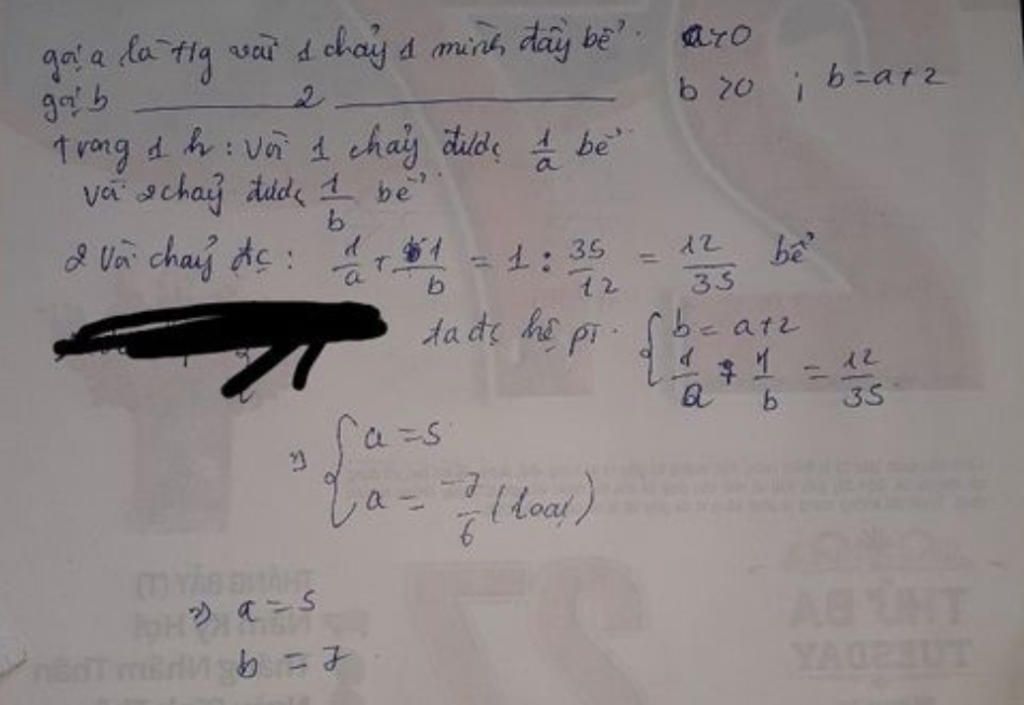 gọi a là t/g vòi 1 chảy 1 mình đầy bể. a>0
gọi b ———— 2 ———————— b >0 ; b=a+2
trong 1 h: vòi 1 chảy được 1/a bể
vòi 2 chảy được 1/b bể
2 vòi chảy đc: 1/a + 1/b = 1 : 35/12 = 12/35 bể
ta đc hệ pt. { b = a+2
1/a + 1/b = 12/35
=> { a = 5
a = -7/6 (loại)
=> a = 5
b = 7
THÁNG BẢY (T)
Năm Kỷ Hợi
Tháng Nhâm Thân
27
THỨ BA
TUESDAY